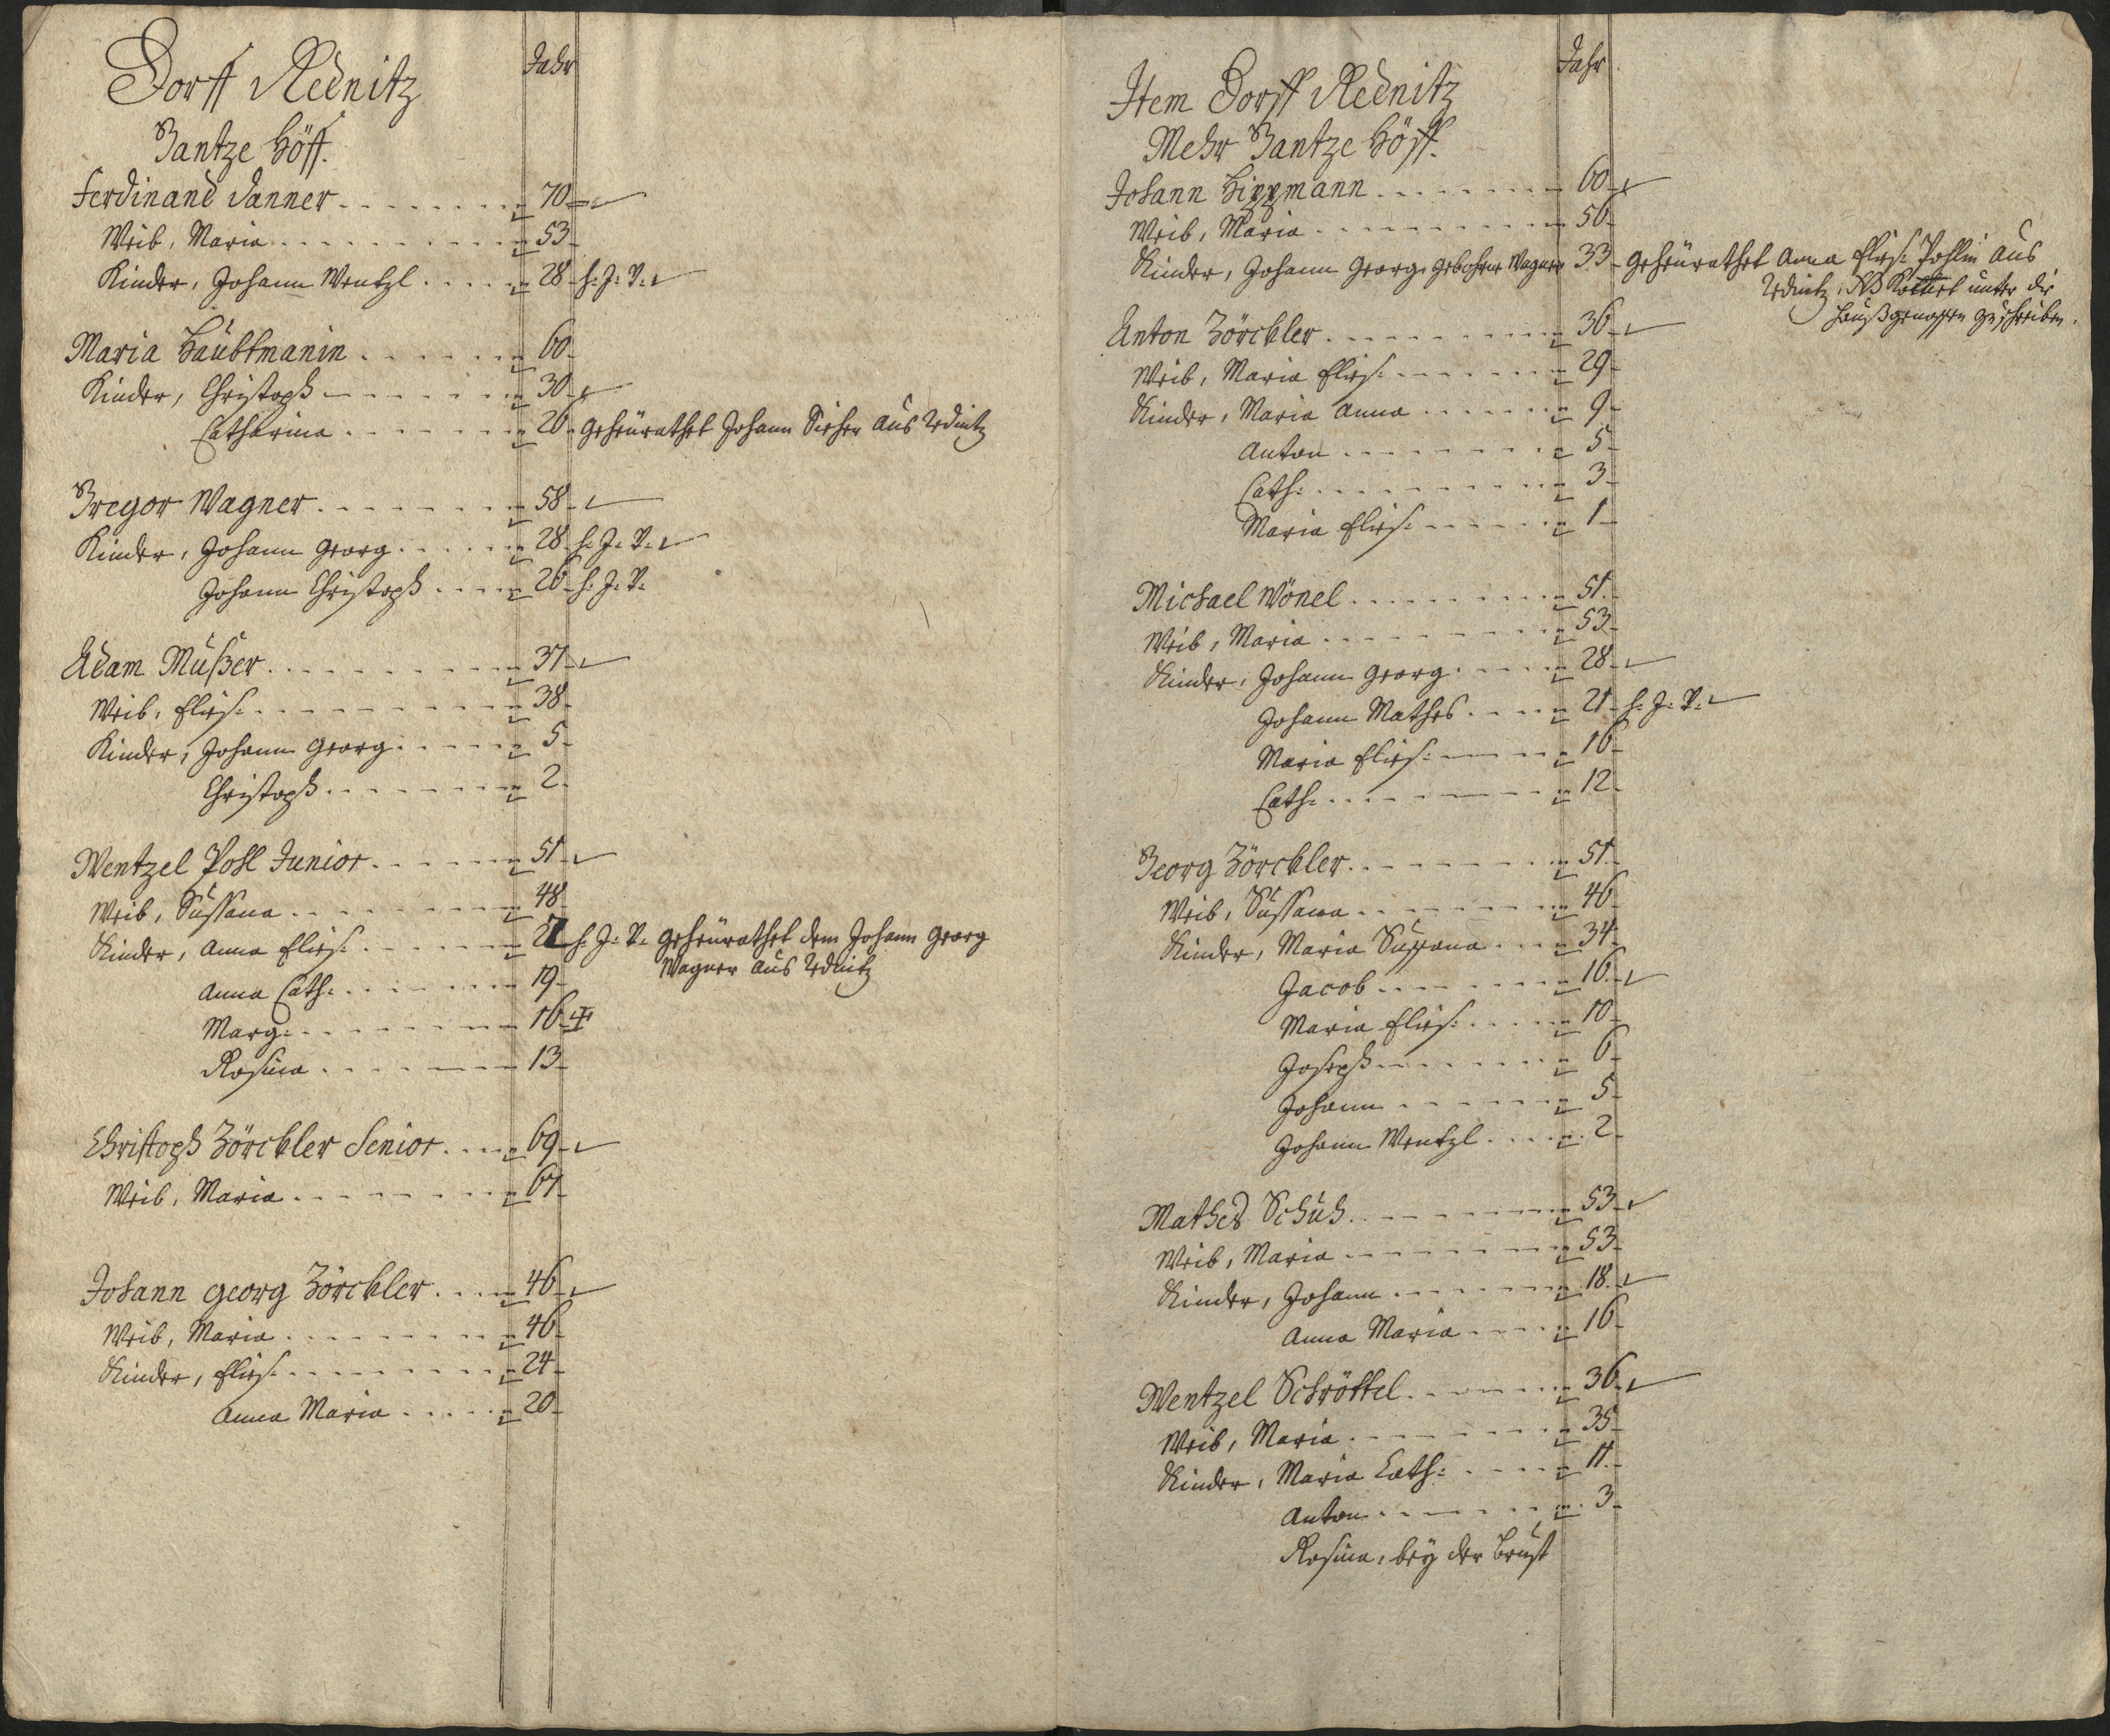 Dorff Rednitz
Jahr
Gantze Höff.
Ferdinand Danner 70
Weib, Maria 53
Kinder, Johann Wentzl 28 h: J: V:
Maria Haubtmanin 60
Kinder, Christoph 30
Catharina 26 geheürathet Johann aus Rednitz
Gregor Wagner 58
Kinder, Johann Georg 28 h: J: V:
Johann Christoph 26 h: J: V:
Adam Mußer 37
Weib, Elis: 38
Kinder, Johann Georg 5
Christoph 2
Wentzel Pohl Junior 51
Weib, Sussana 48
Kinder, Anna Elis: h: J: V: geheürathet dem Johann Georg
Wagner aus Rednitz
Anna Cath: 19
Marg: 16
Rosina 13
Christoph Zörckler Senior 69
Weib, Maria 67
Johann Georg Zörckler 46
Weib, Maria 46
Kinder, Elis: 24
Anna Maria 20
Item Dorff Rednitz
Jahr
Mehr Gantze Höff.
Johann Hippmann 60
Weib, Maria 56
Kinder, Johann Georg, gebohrner Wagner 33 geheürathet Anna Elis: Pohlin aus
Rednitz, NB unter die
Haußgenossen zuschreiben.
Anton Zörckler 36
Weib, Maria Elis: 29
Kinder, Maria Anna 9
Anton 5
Cath: 3
Maria Elis: 1
Michael Wönel 51
Weib, Maria 53
Kinder, Johann Georg 28
Johann Mathes 21 h: J: V:
Maria Elis: 16
Cath: 12
Georg Zörckler 51
Weib, Sussana 46
Kinder, Maria Sussana 34
Jacob 16
Maria Elis: 10
Joseph 6
Johann 5
Johann Wentzl 2
Mathes Schuh 53
Weib, Maria 53
Kinder, Johann 18
Anna Maria 16
Wentzel Schröttel 36
Weib, Maria 35
Kinder, Maria Cath: 11
Anton 3
Rosina, bey der Brust